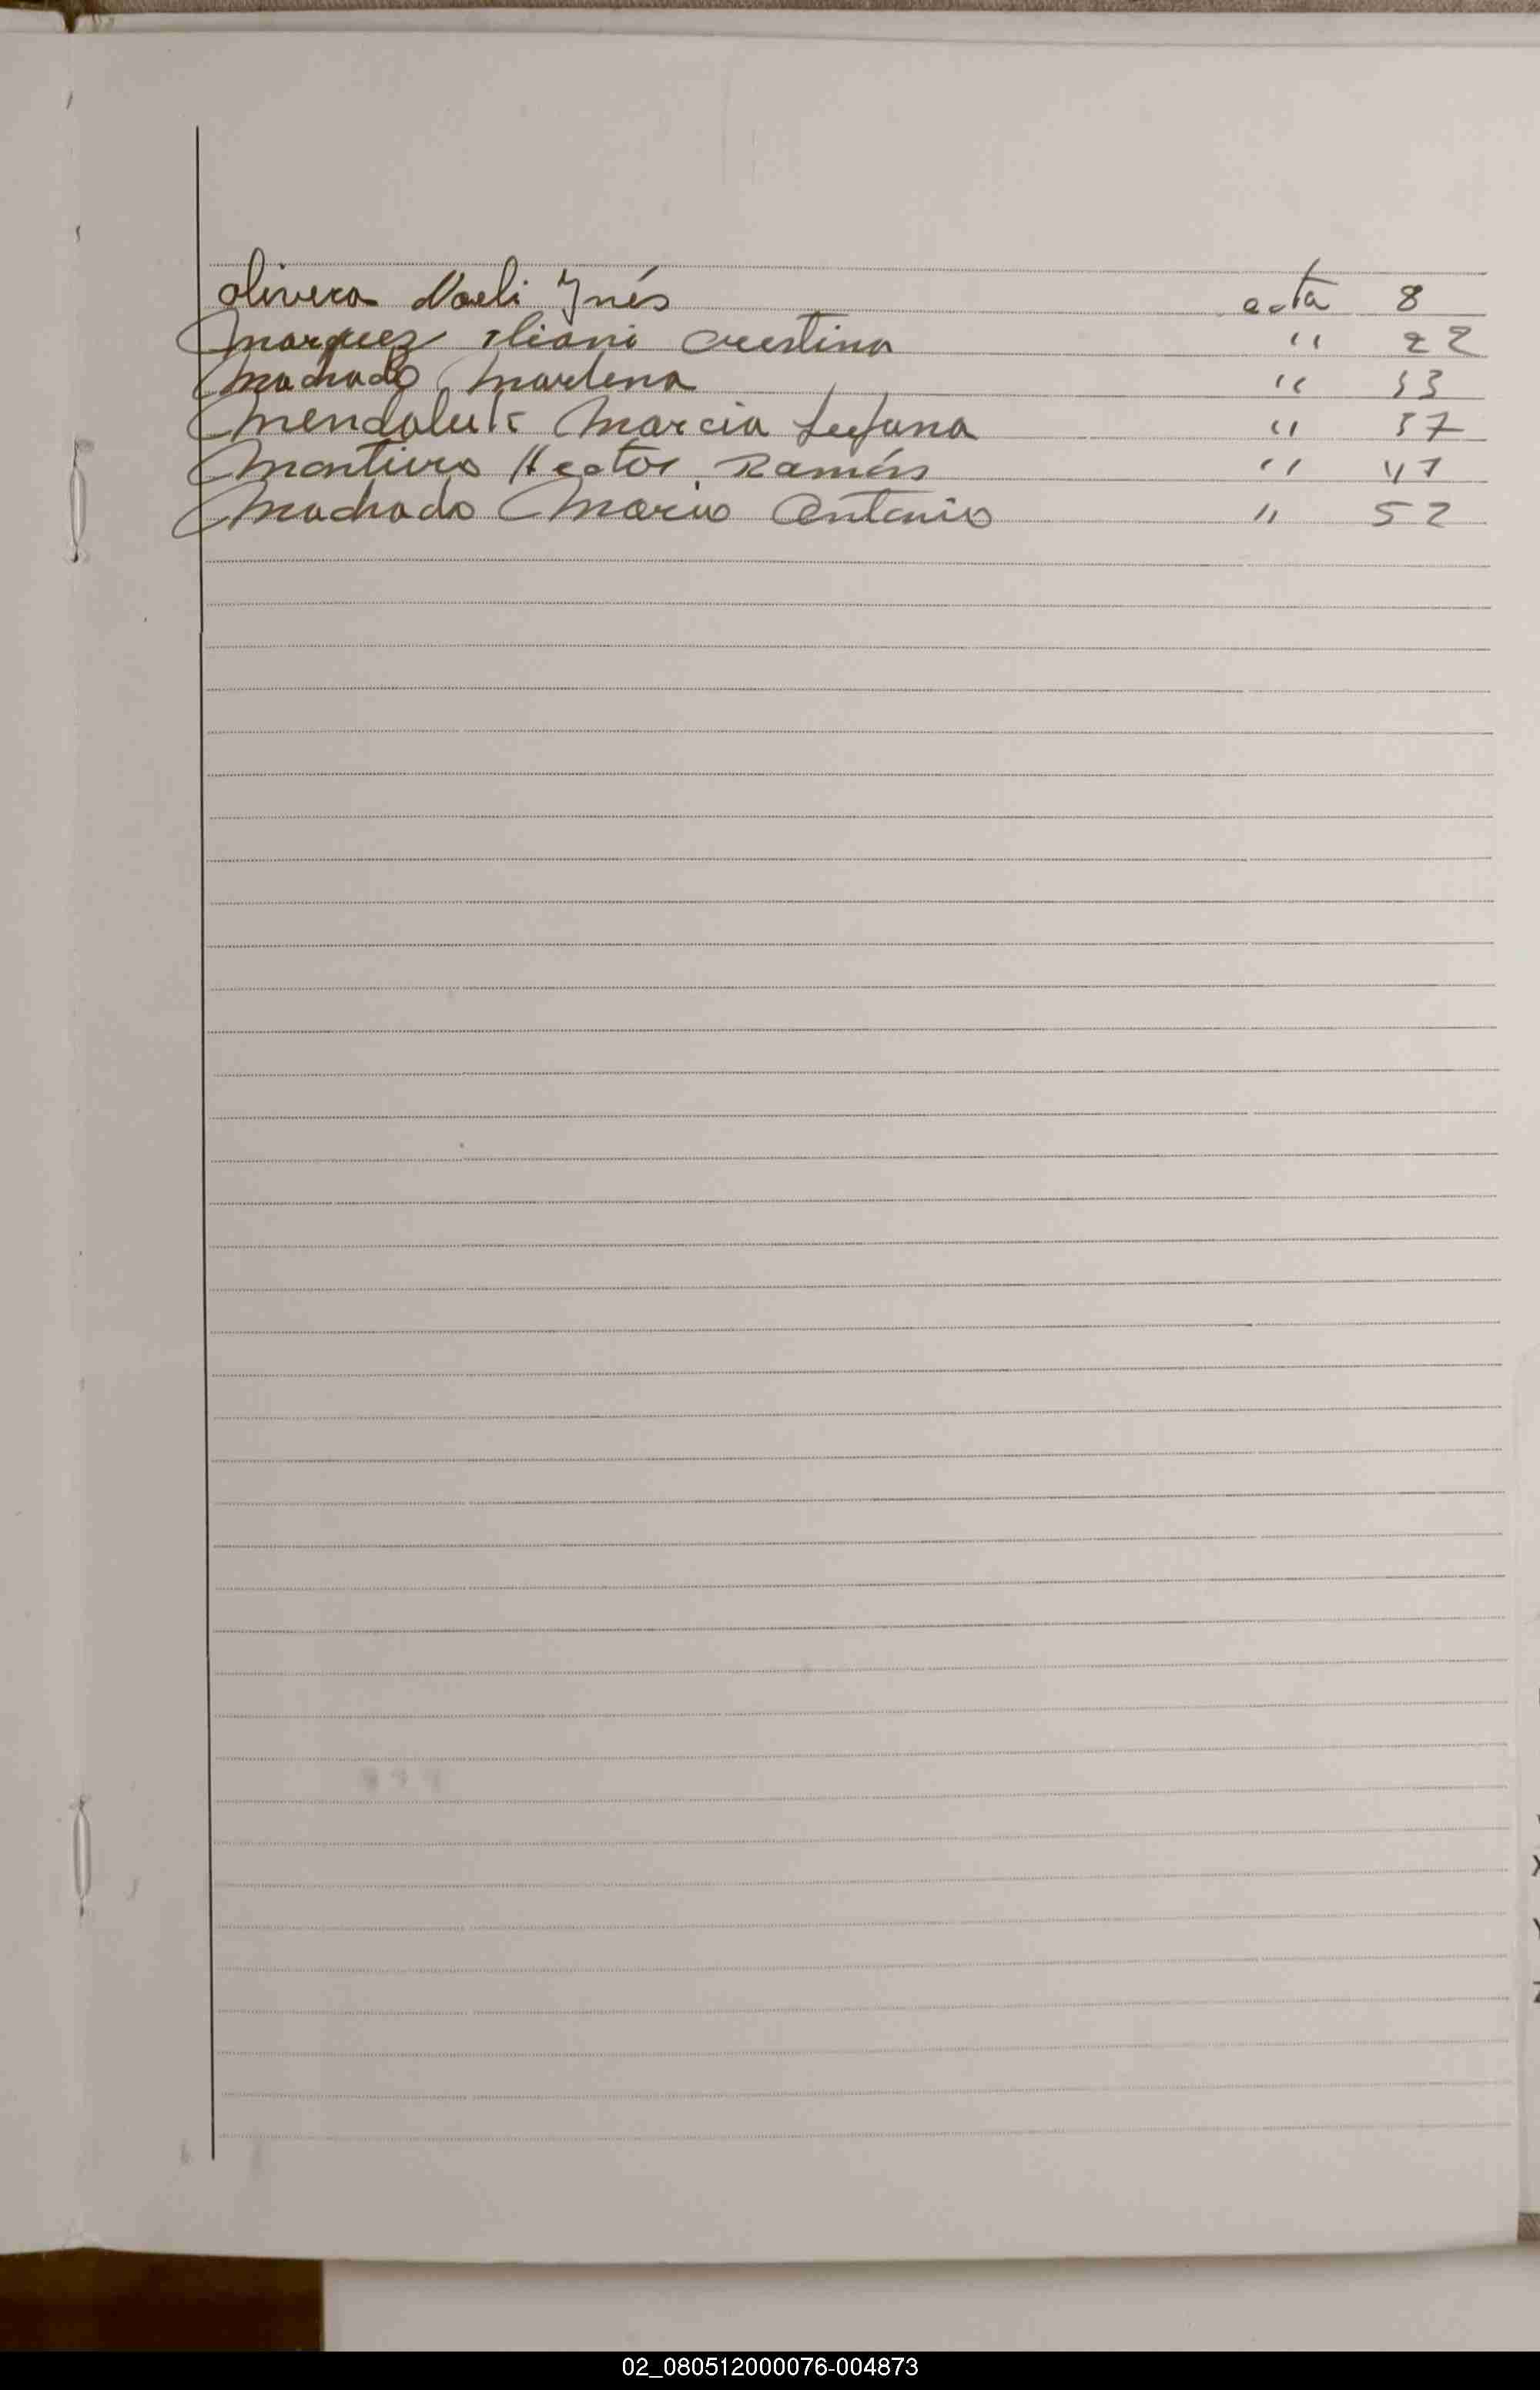 Olivera Noeli Inés acta 8
Marquez Iliani Cristina " 22
Machado Marlena " 33
Mendaluk Marcia " 37
Montiero Hector Ramón " 41
Machado Mario Antonio " 52
X
Y
Z
02_080512000076-004873